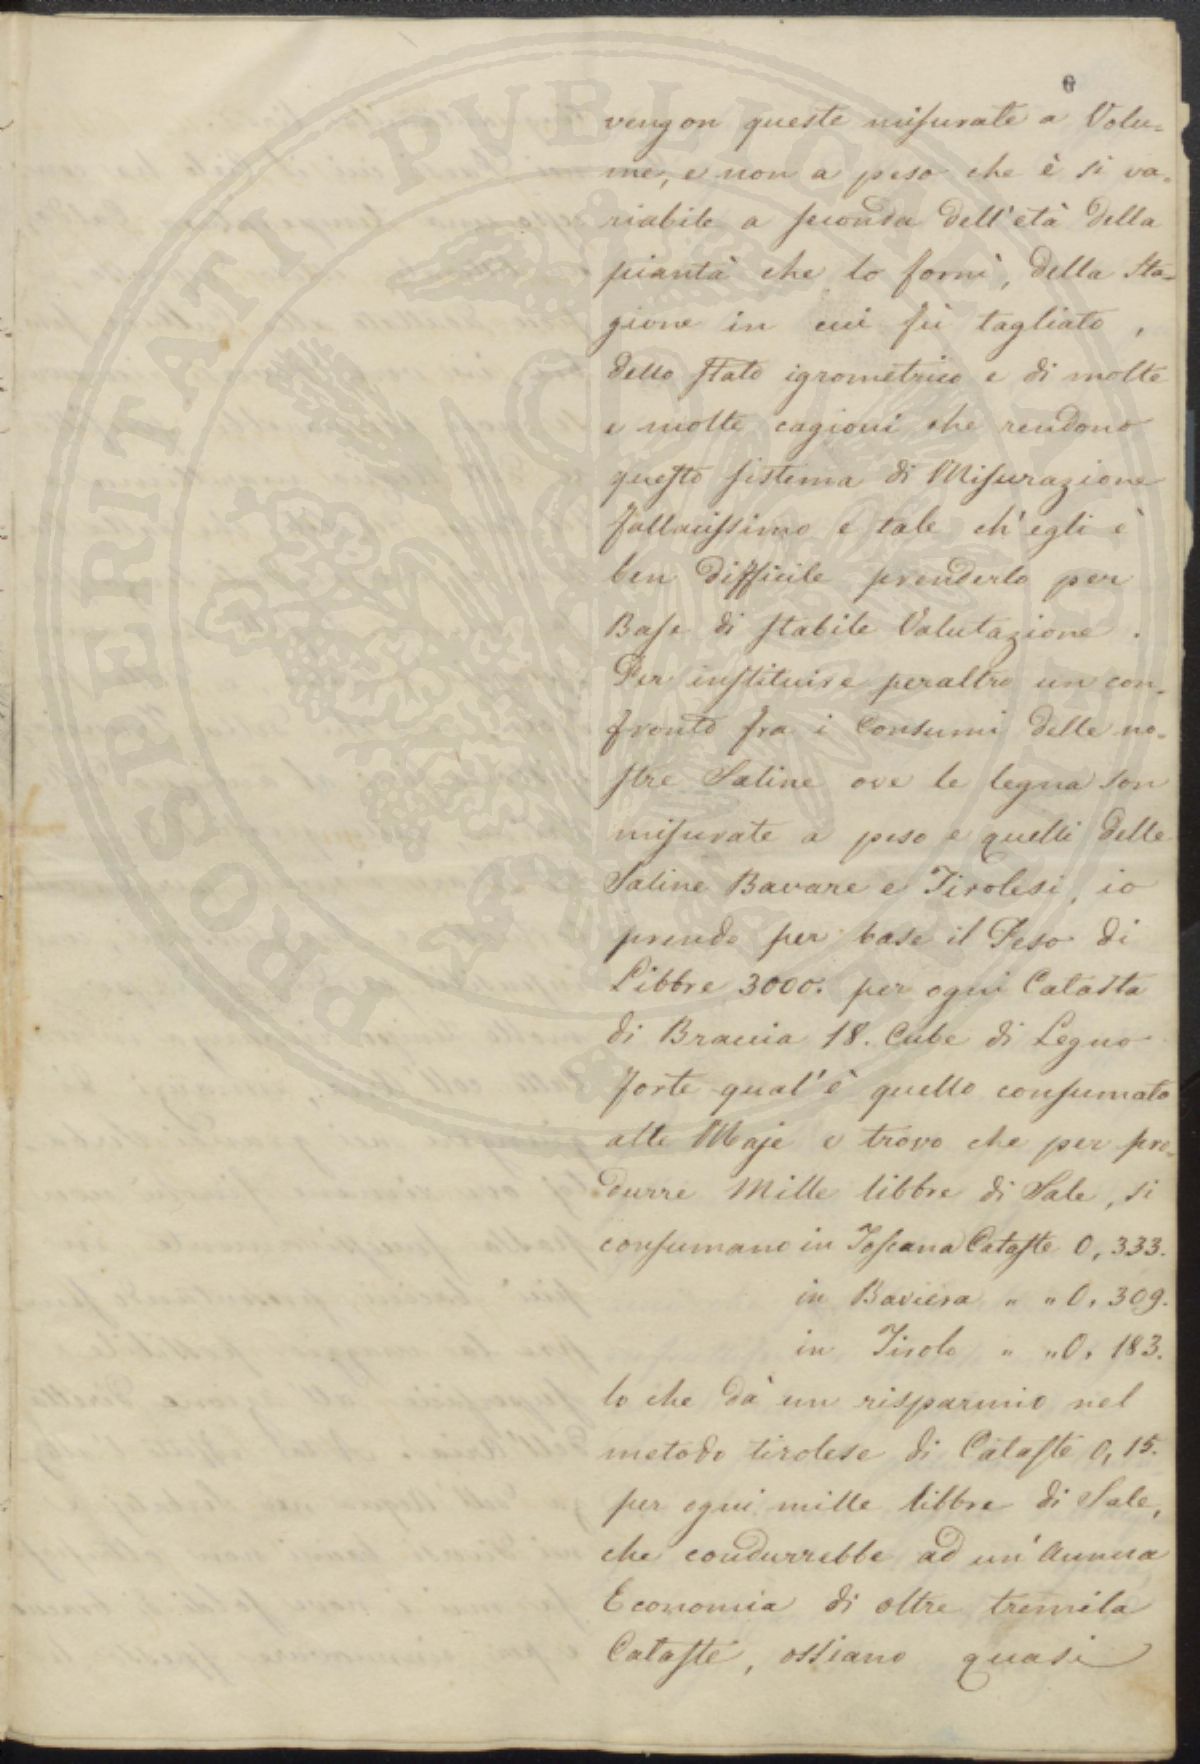 6
vengon queste misurate a Volu=
me, e non a peso che è si va=
riabile a seconda dell'età della
pianta che lo fornì, della Sta=
gione in cui fù tagliato,
dello stato igrometrico e di molte
e molte cagioni che rendono
questo sistema di Misurazione
fallacissimo e tale ch'egli è
ben difficile prenderlo per
Base di stabile Valutazione.
Per instituire peraltro un con=
fronto fra i Consumi delle no=
stre Saline ove le legna son
misurate a peso e quelli delle
Saline Bavare e Tirolesi, io
prendo per base il Peso di
Libbre 3000. per ogni Catasta
di Braccia 18. Cube di Legno
forte qual'è quello consumato
alle Moje e trovo che per pro=
durre Mille libbre di Sale, si
consumano in Toscana Cataste 0,333.
in Baviera " " 0,309.
in Tirolo " " 0,183.
lo che dà un risparmio nel
metodo tirolese di Cataste 0,15.
per ogni mille libbre di Sale,
che condurrebbe ad un'Annua
Economia di oltre tremila
Cataste, ossiano quasi
PROSPERITATI PVBLICAE